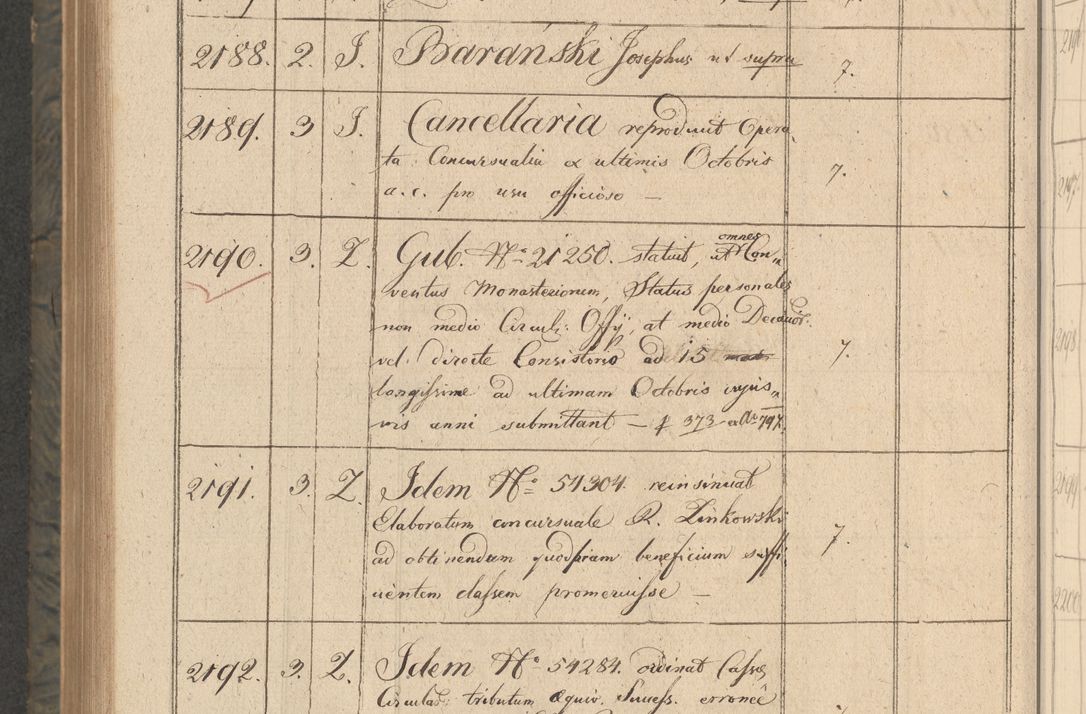 2188. 2. J. Barański Josephus ut supra 7.
2189. 3 J. Cancellaria reproducit Opera
ta Concursualia ex ultimis Octobris 7.
a. c. pro usu officioso —
2190. 3. Z. Gub. No 21250. statuit, ut omnes Con„
ventus Monasteriorum, Status personales
non medio Circul: Offij, at medio Decanor.
vel directe Consistorio ad 15 7.
longissime ad ultimam Octobris cujus„
vis anni submittant — f 373 a 797.
2191. 3. Z. Idem No 54304. reinsinuat
Elaboratum concursuale R. Linkowski 7.
ad obtinendum quodpiam beneficium suffi
cientem classem promeruisse —
2192. 3. Z. Idem No 54284. ordinat Cassæ
Circular: tributum æquiv. Success. erronee
2197
2198
2199
2200